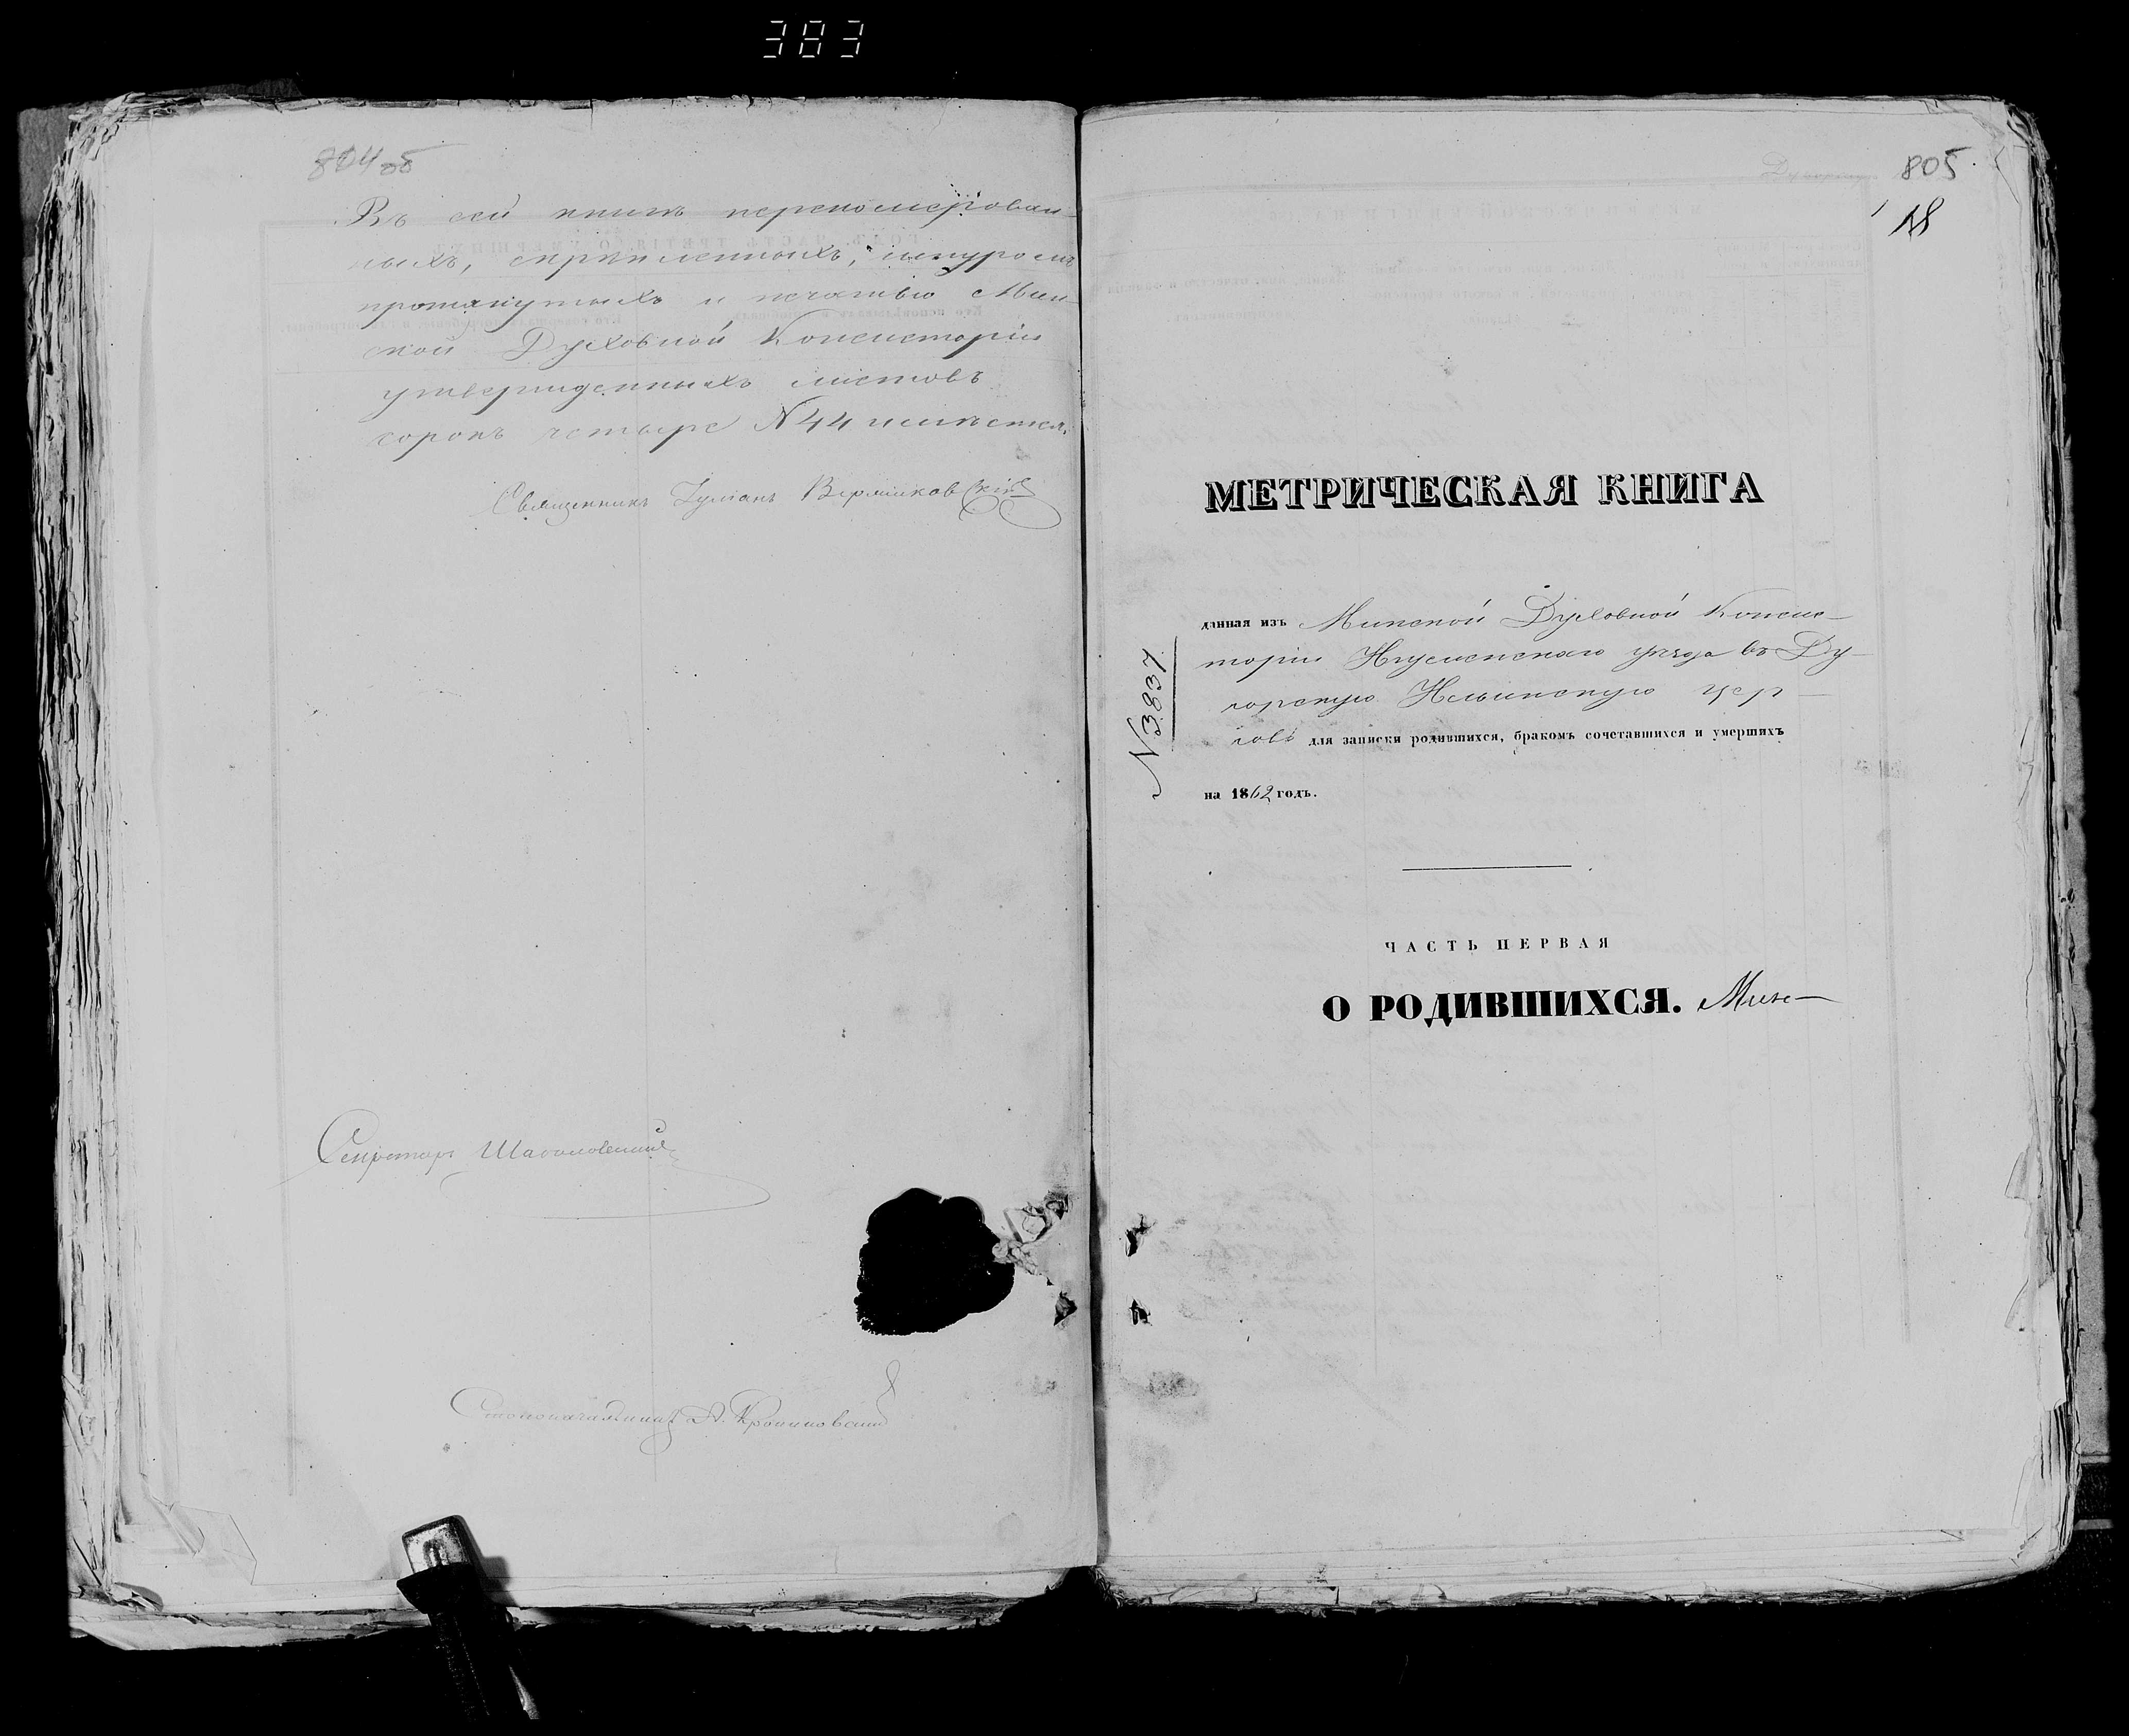 383
804 об
Въ сей книгѣ перенумерован-
ныхъ, скрѣпленныхъ, шнуромъ
протянутыхъ и печатью Мин-
ской Духовной Консисторіи
утвержденныхъ листовъ
сорокъ четыре N 44
Священникъ Іуліанъ
Секретарь
Столоначальникъ А.
805
18
МЕТРИЧЕСКАЯ КНИГА
данная изъ Минской Духовной Консис-
торіи Игуменскаго уѣзда въ Ду-
корскую Ильинскую цер-
ковь для записки родившихся, бракомъ сочетавшихся и умершихъ
на 1862 годъ.
N 3837
ЧАСТЬ ПЕРВАЯ
О РОДИВШИХСЯ. Мин-